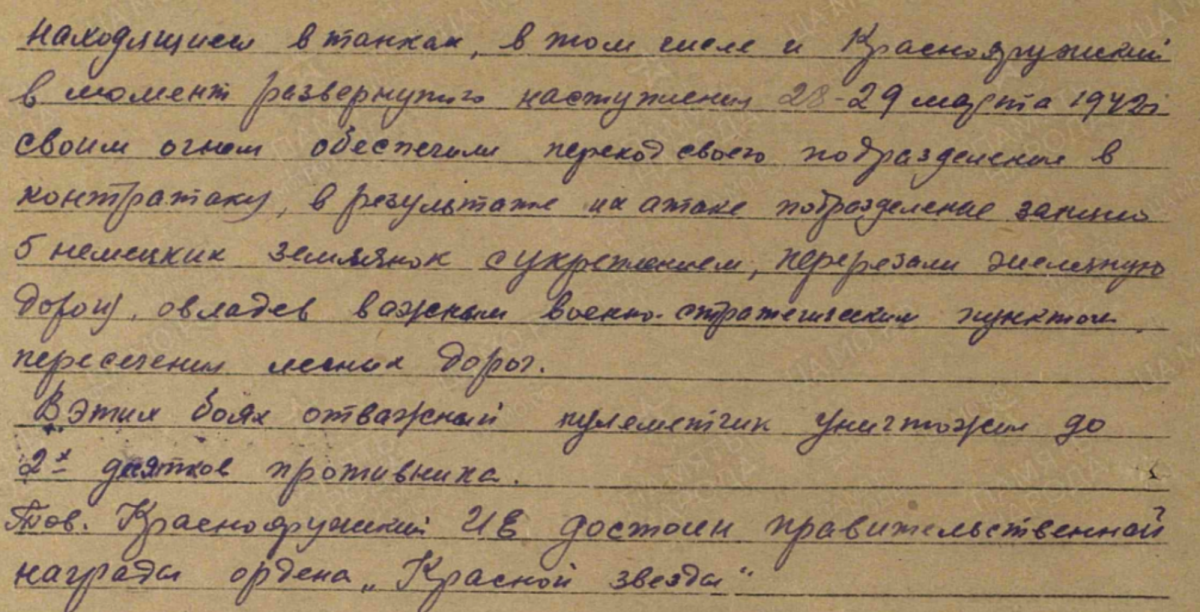 находящиеся в танках, в том числе и Краснояружский
в момент развернутого наступления 28-29 марта 1942г
своим огнем обеспечили переход своего подразделения в
контратаку, в результате их атаки подразделение заняло
5 немецких землянок с укреплением, перерезали железную
дорогу, овладев важным военно-стратегическим пунктом
пересечения лесных дорог.
В этих боях отважный пулеметчик уничтожил до
2х десятков противника.
Тов. Краснояружский И Е достоин правительственной
награды ордена „Красной звезды"